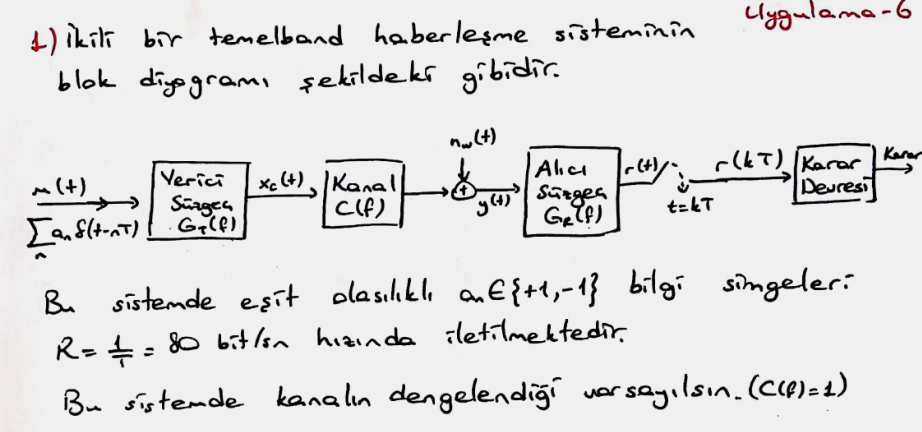 Uygulama-6
1) İkili bir temelband haberleşme sisteminin
blok diyagramı şekildeki gibidir.
n_w(t)
m(t)
∑_n a_n δ(t-nT)
Verici
Süzgeç
G_T(f)
x_c(t)
Kanal
C(f)
+
y(t)
Alıcı
Süzgeç
G_R(f)
r(t)
t=kT
r(kT)
Karar
Devresi
Karar
Bu sistemde eşit olasılıklı a_n ∈ {+1,-1} bilgi simgeleri
R = 1/T = 80 bit/sn hızında iletilmektedir.
Bu sistemde kanalın dengelendiği varsayılsın. (C(f)=1)